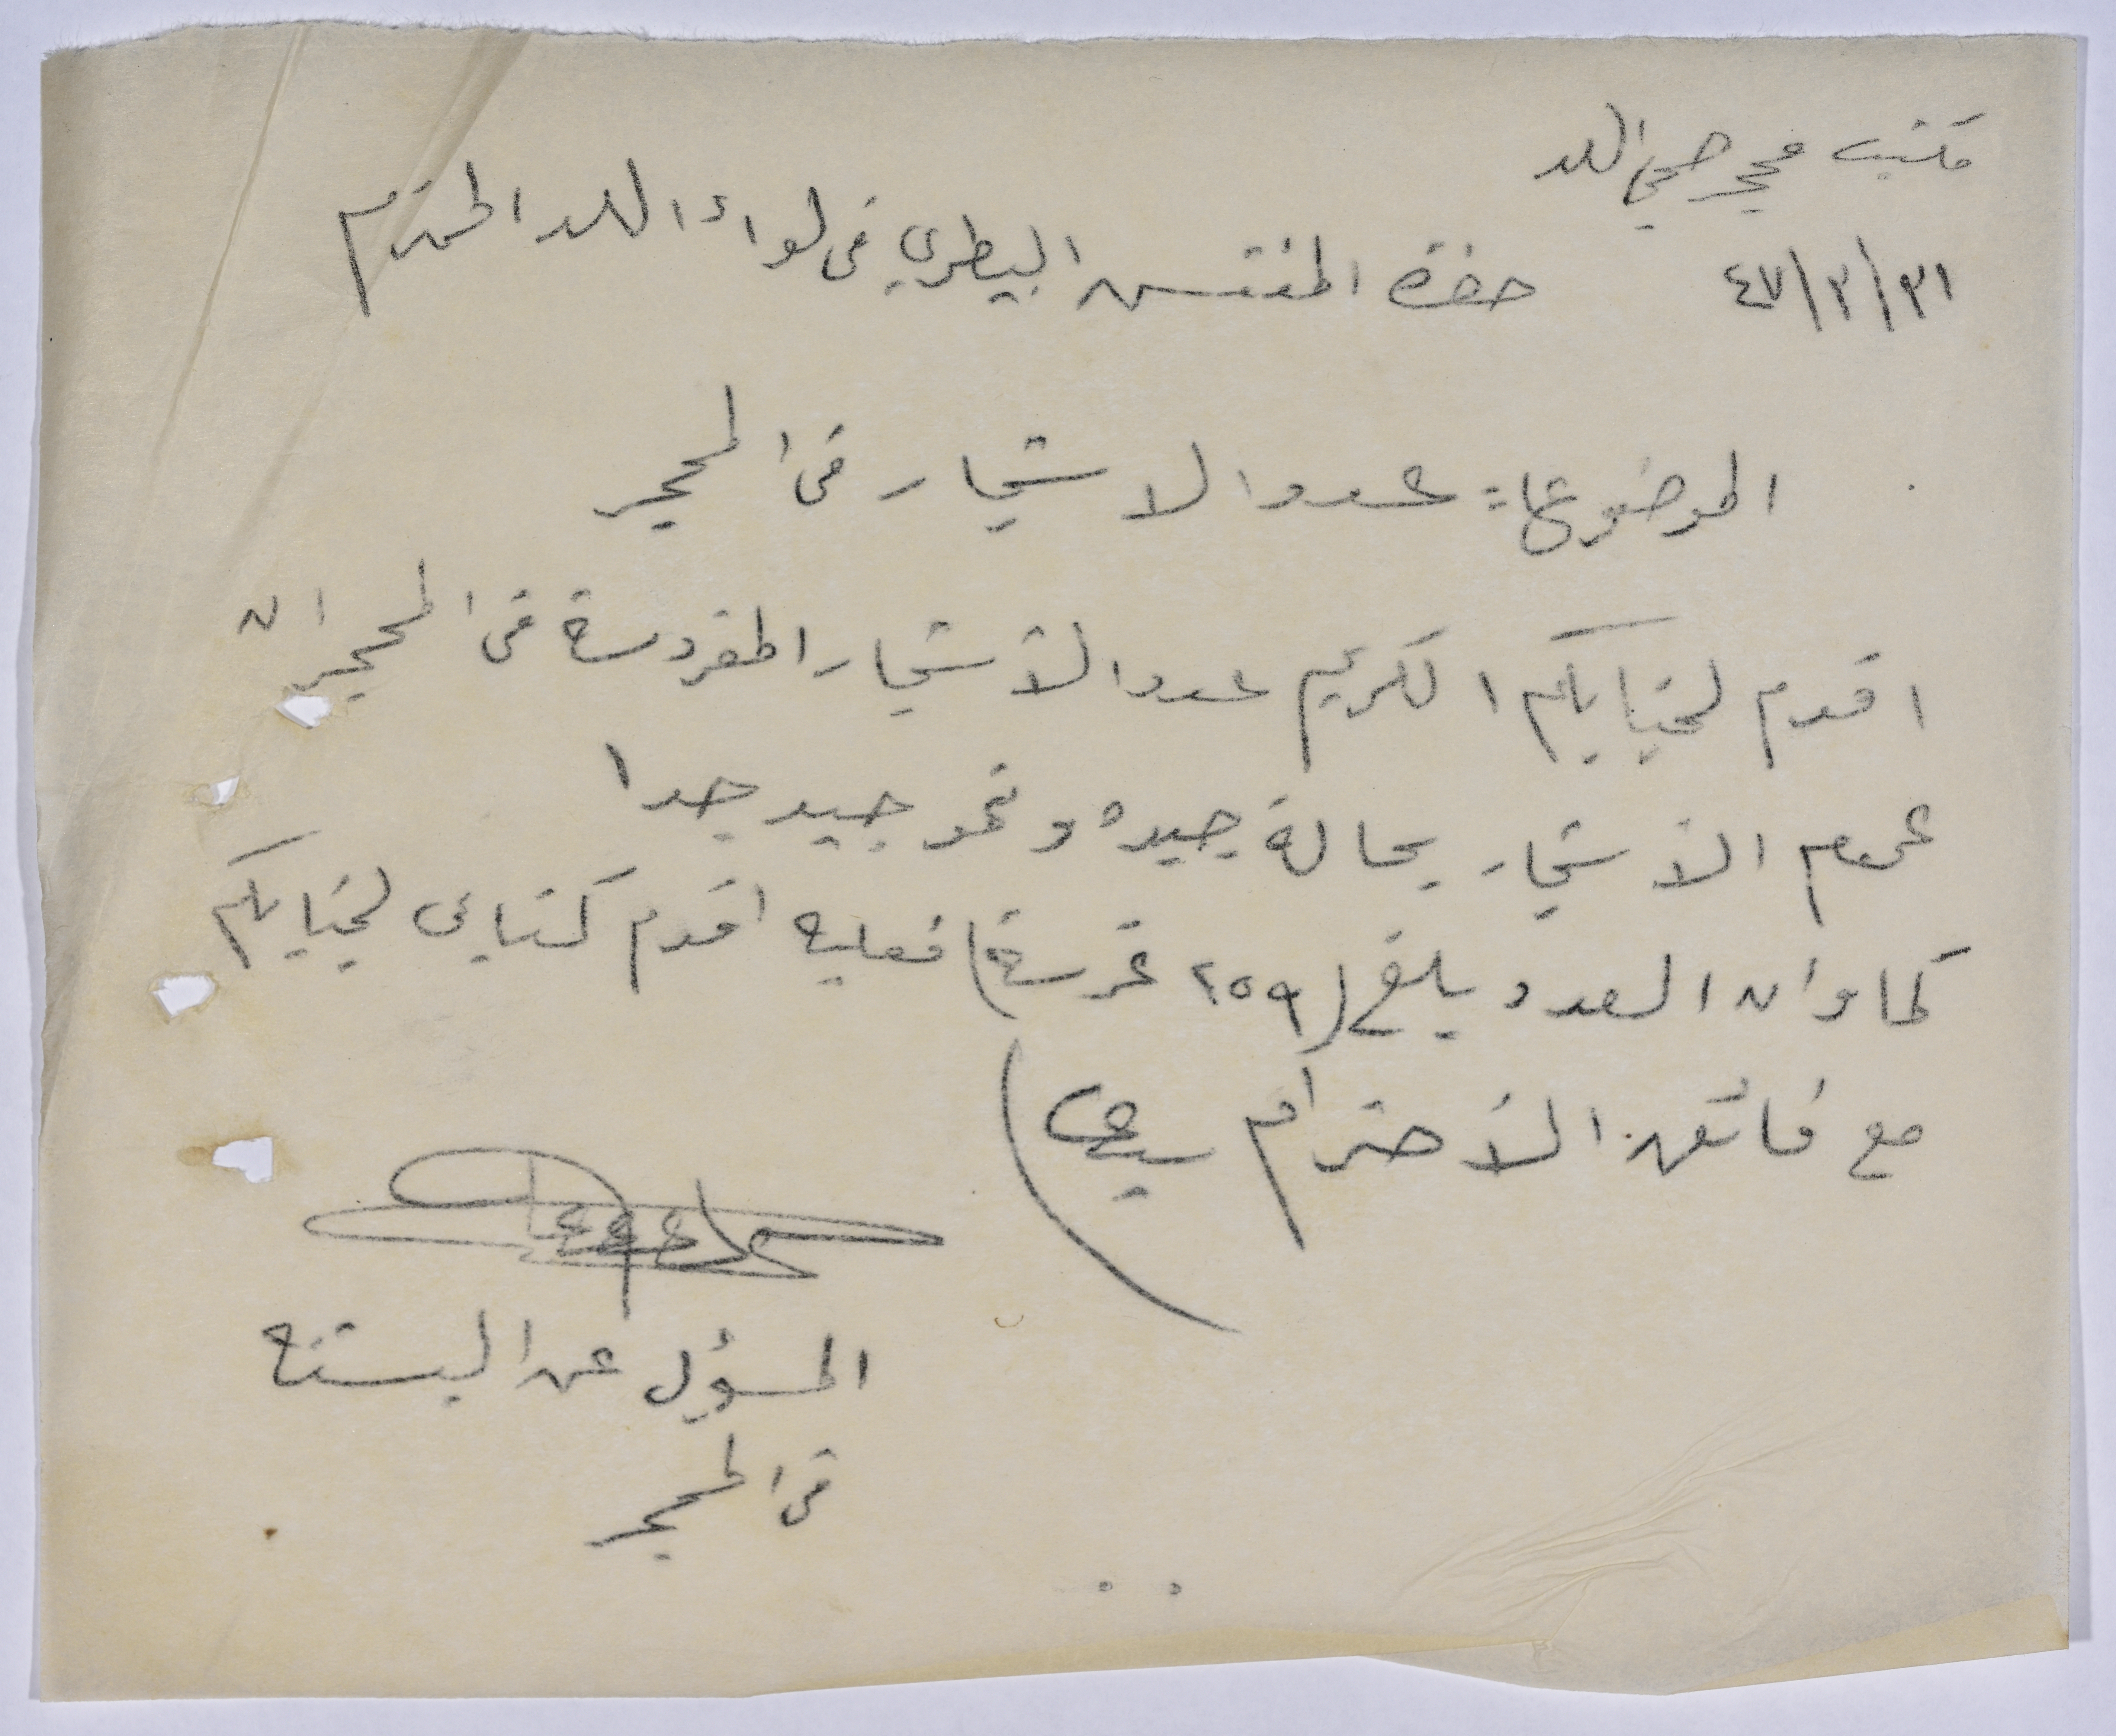 مكتب محجر صحي اللد
٣١/٣/٤٧
حضرة المفتش البيطري في لواء اللد المحترم
الموضوع: عدد الاشجار في المحجر
اقدم لجنابكم الكريم عدد الأشجار المغروسة في المحجر ان
عموم الأشجار بحالة جيده ونمو جيد جدا
كما وان العدد يبلغ (٢٥٩ غرسة) فعليه اقدم كتابي لجنابكم
مع فائق الأحترام سيدي
المسؤل عن البستنه
في المحجر